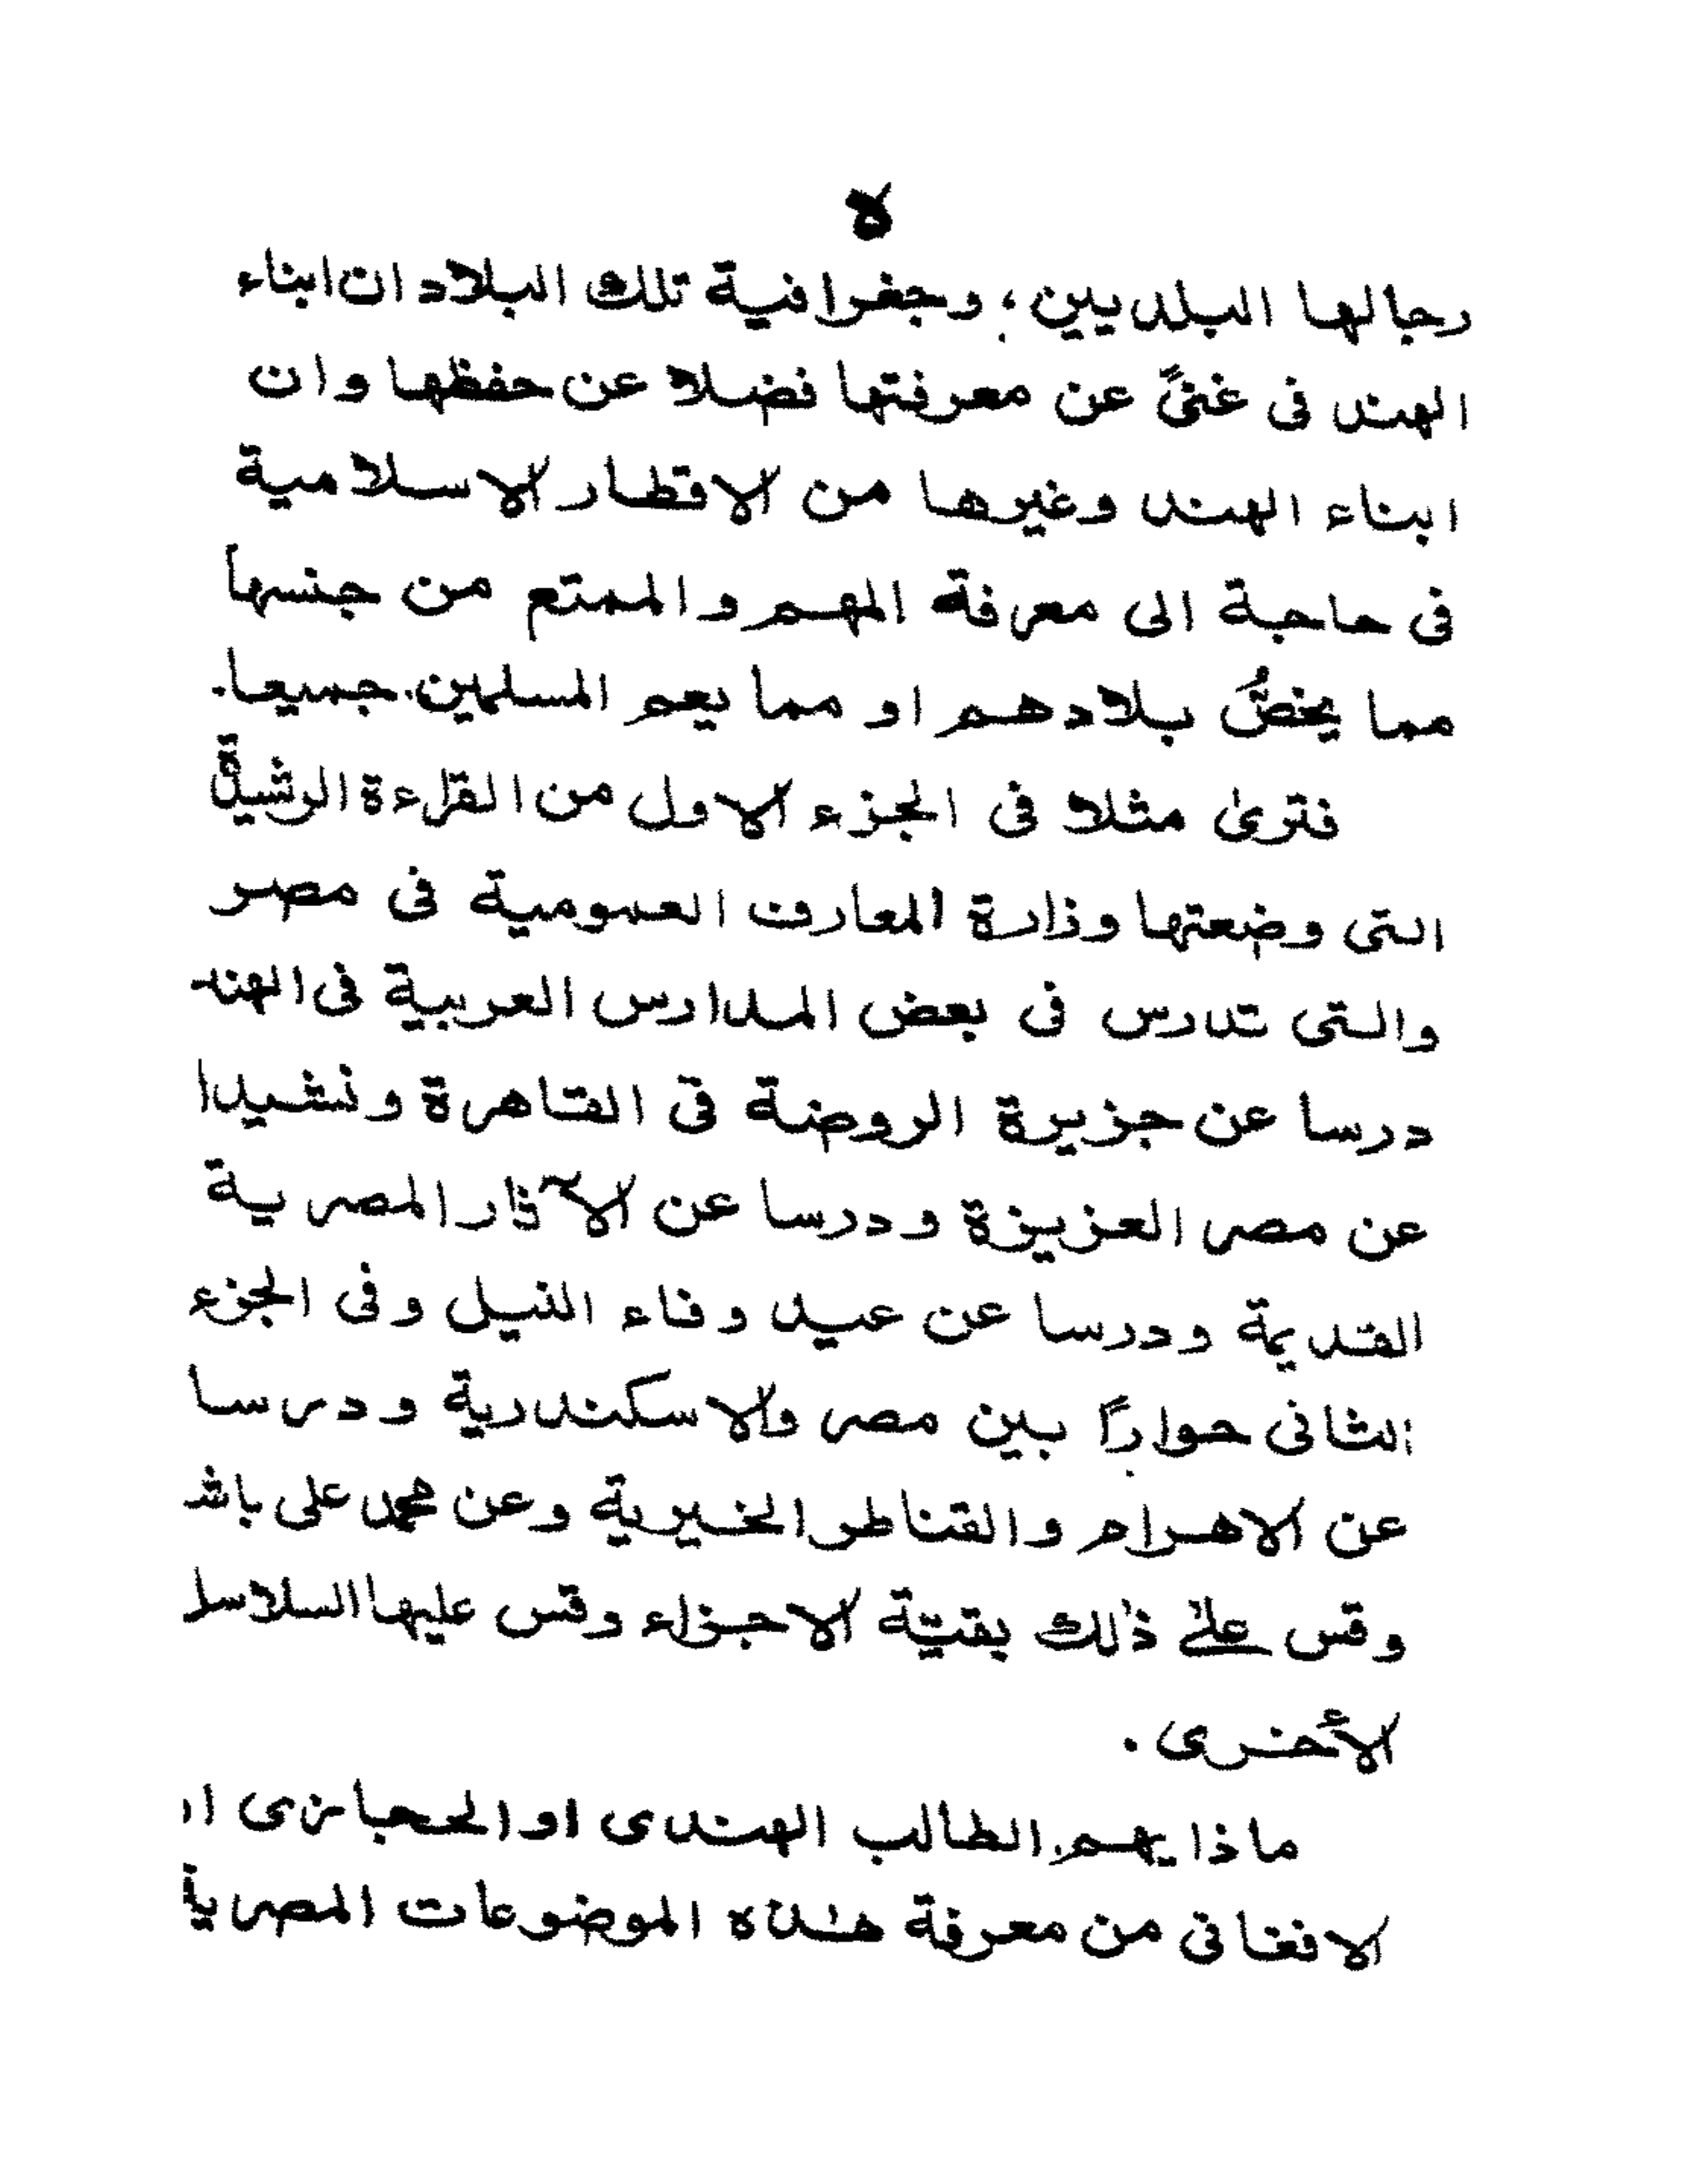 ه
رجالها البلديين، وجغرافية تلك البلاد ان ابناء
الهند فى غنىً عن معرفتها فضلا عن حفظها وان
ابناء الهند وغيرها من الاقطار الاسلامية
فى حاجة الى معرفة المهم والممتع من جنسها
مما يخصُّ بلادهم او مما يعم المسلمين جميعا.
فترىٰ مثلا فى الجزء الاول من القراءة الرشيدة
التى وضعتها وزارة المعارف العمومية فى مصر
والتى تدرس فى بعض المدارس العربية فى الهند
درسا عن جزيرة الروضة فى القاهرة ونشيدا
عن مصر العزيزة ودرسا عن الآثار المصرية
القديمة ودرسا عن عيد وفاء النيل وفى الجزء
الثانى حواراً بين مصر والاسكندرية ودرسا
عن الاهرام والقناطر الخيرية وعن محمد على باش
وقس علىٰ ذٰلك بقيّة الاجزاء وقس عليها السلاسل
الأخرى.
ماذا يهم الطالب الهندى او الحجازى
الافغانى من معرفة هٰذه الموضوعات المصرية